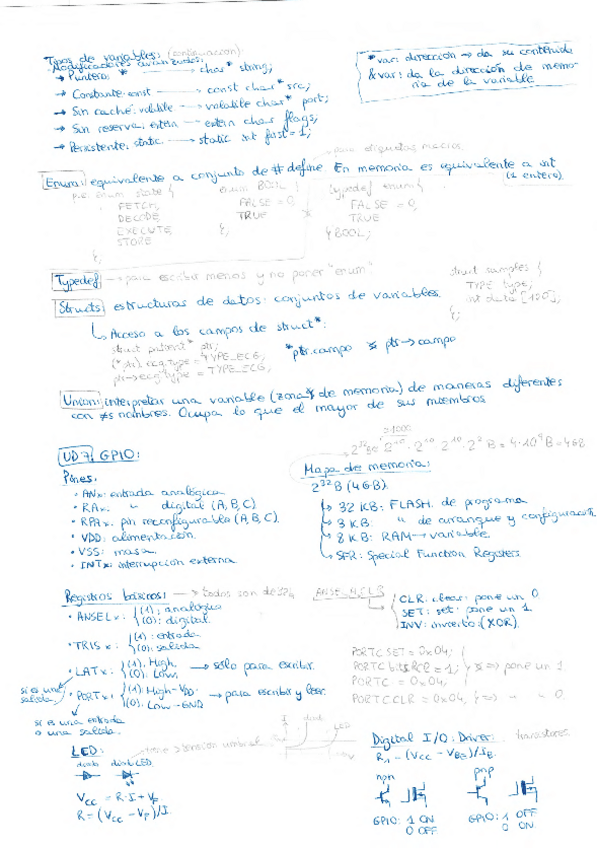 Tipos de variables: (continuación).
Modificadores avanzados:
→ Puntero: * → char* string;
→ Constante: const → const char* src;
→ Sin caché: volatile → volatile char* port;
→ Sin reserva: extern → extern char flags;
→ Persistente: static → static int first = 1;
*var: dirección → da su contenido
&var: da la dirección de memoria de la variable
→ para etiquetas macros
Enum: equivalente a conjunto de #define. En memoria es equivalente a int
(1 entero).
enum state {
FETCH,
DECODE,
EXECUTE,
STORE
};
enum BOOL {
FALSE = 0,
TRUE
};
typedef enum {
FALSE = 0,
TRUE
} BOOL;
Typedef → para escribir menos y no poner "enum"
Structs: estructuras de datos: conjuntos de variables.
struct samples {
TYPE type;
int data [120];
};
↳ Acceso a los campos de struct*:
struct patient* ptr;
(*ptr).ecg.type = TYPE_ECG;
ptr→ecg.type = TYPE_ECG;
*ptr.campo ptr→campo
Union: interpretar una variable (zona de memoria) de maneras diferentes
con ≠s nombres. Ocupa lo que el mayor de sus miembros
UD7: GPIO:
Pines:
• ANx: entrada analógica
• RAx: " digital (A, B, C)
• RPAx: pin reconfigurable (A, B, C).
• VDD: alimentación.
• VSS: masa.
• INTx: interrupción externa
Mapa de memoria:
2^32 B (4GB).
↳ 32 KB: FLASH de programa
↳ 3 KB: " de arranque y configuración
↳ 8 KB: RAM → variable
↳ SFR: Special Function Registers
Registros básicos: → todos son de 32b
• ANSELx: (1): analógico
(0): digital
• TRISx: (1): entrada
(0): salida
• LATx: (1): High
(0): Low → sólo para escribir.
si es una salida
• PORTx: (1): High-VDD
(0): Low-GND → para escribir y leer
si es una entrada
o una salida.
CLR: clear: pone un 0
SET: set: pone un 1
INV: invierte (XOR).
PORTCSET = 0x04;
PORTC = 0x04;
⇒ pone un 1
PORTCCLR = 0x04; ⇒ " " 0
LED: tiene > tensión umbral
diodo diodo LED
I diodo LED
Vcc = R·I + Vγ
R = (Vcc - Vγ)/I
Digital I/O: Driver: transistores
(Vcc - VBE)/iB
npn pnp
GPIO: 1 ON
0 OFF
GPIO: 1 OFF
0 ON